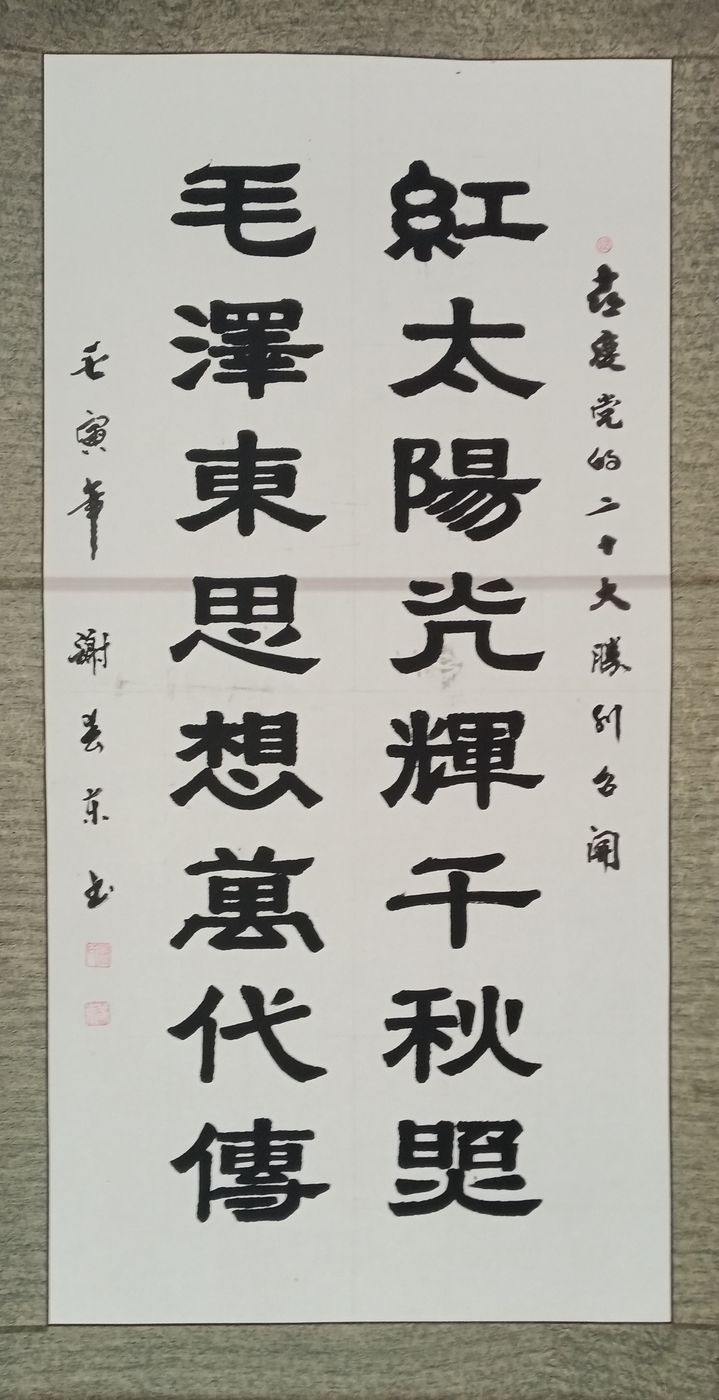 喜慶党的二十大勝利召開
紅太陽光輝千秋照
毛澤東思想萬代傳
壬寅年 謝春东书